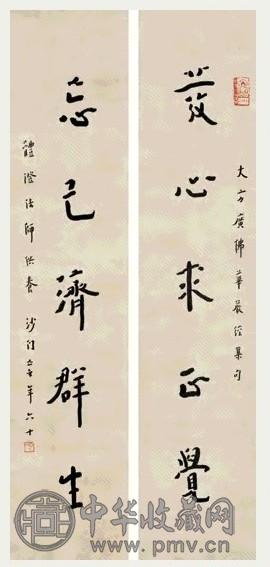 大方廣佛華嚴經集句
發心求正覺
忘己濟群生
體澄法師供養 沙門亡言年六十
中华收藏网
www.pmv.cn